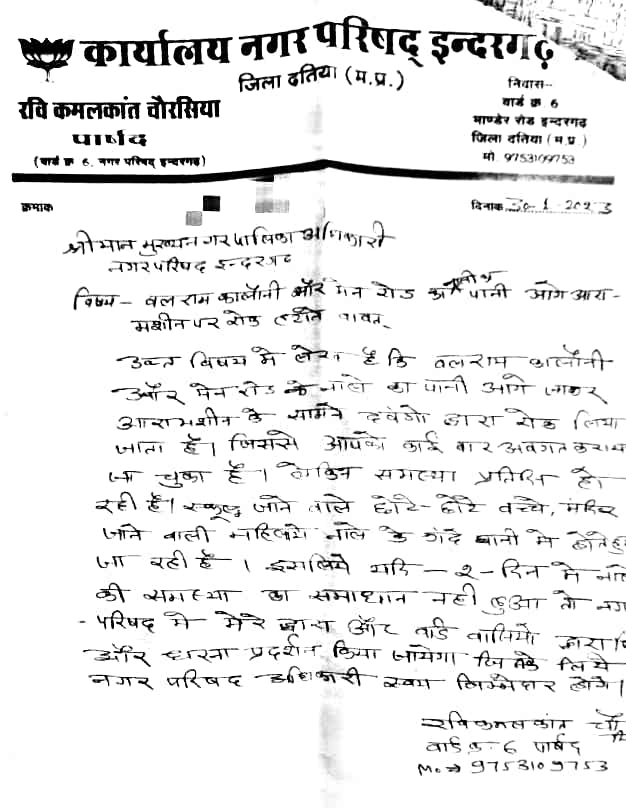 कार्यालय नगर परिषद् इन्दरगढ़
जिला दतिया (म.प्र.)
रवि कमलकांत चौरसिया
पार्षद
(वार्ड क्र 6, नगर परिषद् इन्दरगढ़)
निवास--
वार्ड क्र 6
भाण्डेर रोड इन्दरगढ़
जिला दतिया (म.प्र.)
मो. 9753109753
क्रमांक
दिनांक 30-1-2023
श्रीमान मुख्य नगरपालिका अधिकारी
नगर परिषद इन्दरगढ
विषय - वलराम कालौनी और मेन रोड का पानी आगे आरा-
मशीन पर रोक वावत्
उक्त विषय मे लेख है कि वलराम कालौनी
और मेन रोड के नाले का पानी आगे जाकर
आरामशीन के सामने दवंगो द्वारा रोक लिया
जाता है। जिससे आपको कई वार अवगत कराया
जा चुका है। लेकिन समस्या प्रतिदिन हो
रही है। स्कूल जाने वाले छोटे-छोटे वच्चे, मंदिर
जाने वाली महिलाये नाले के गंदे पानी मे होते हु
जा रही है। इसलिये यदि - २ - दिन मे नाले
की समस्या का समाधान नही हुआ तो नग
- परिषद मे मेरे द्वारा और वार्ड वासियो द्वारा
और धरना प्रदर्शन किया जायेगा जिसके लिये
नगर परिषद अधिकारी स्वय जिम्मेदार होगे।
रवि कमलकांत चौ
वार्ड क्र-6 पार्षद
Mo → 9753109753